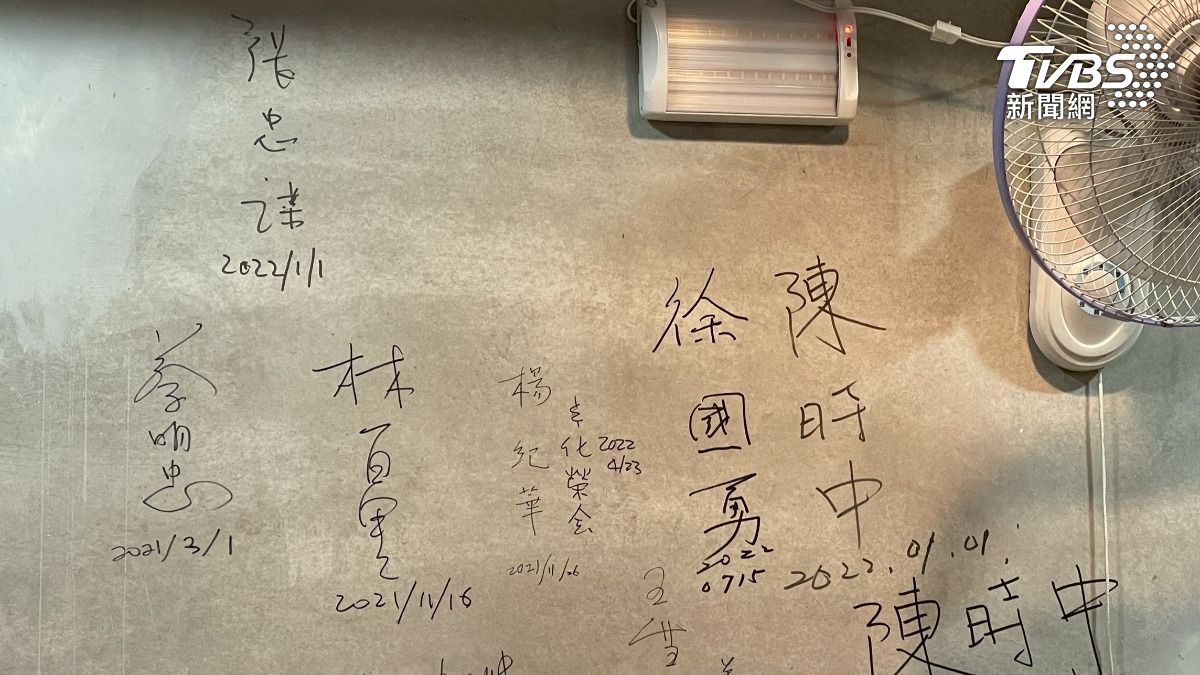 TVBS
新聞網
張忠謀
2022/1/1
蔡明忠
2021/3/1
林百里
2021/11/16
楊紀華
2021/11/26
化榮会
2022
4/23
徐國勇
2022
0715
陳時中
2022.01.01.
陳時中
王雪